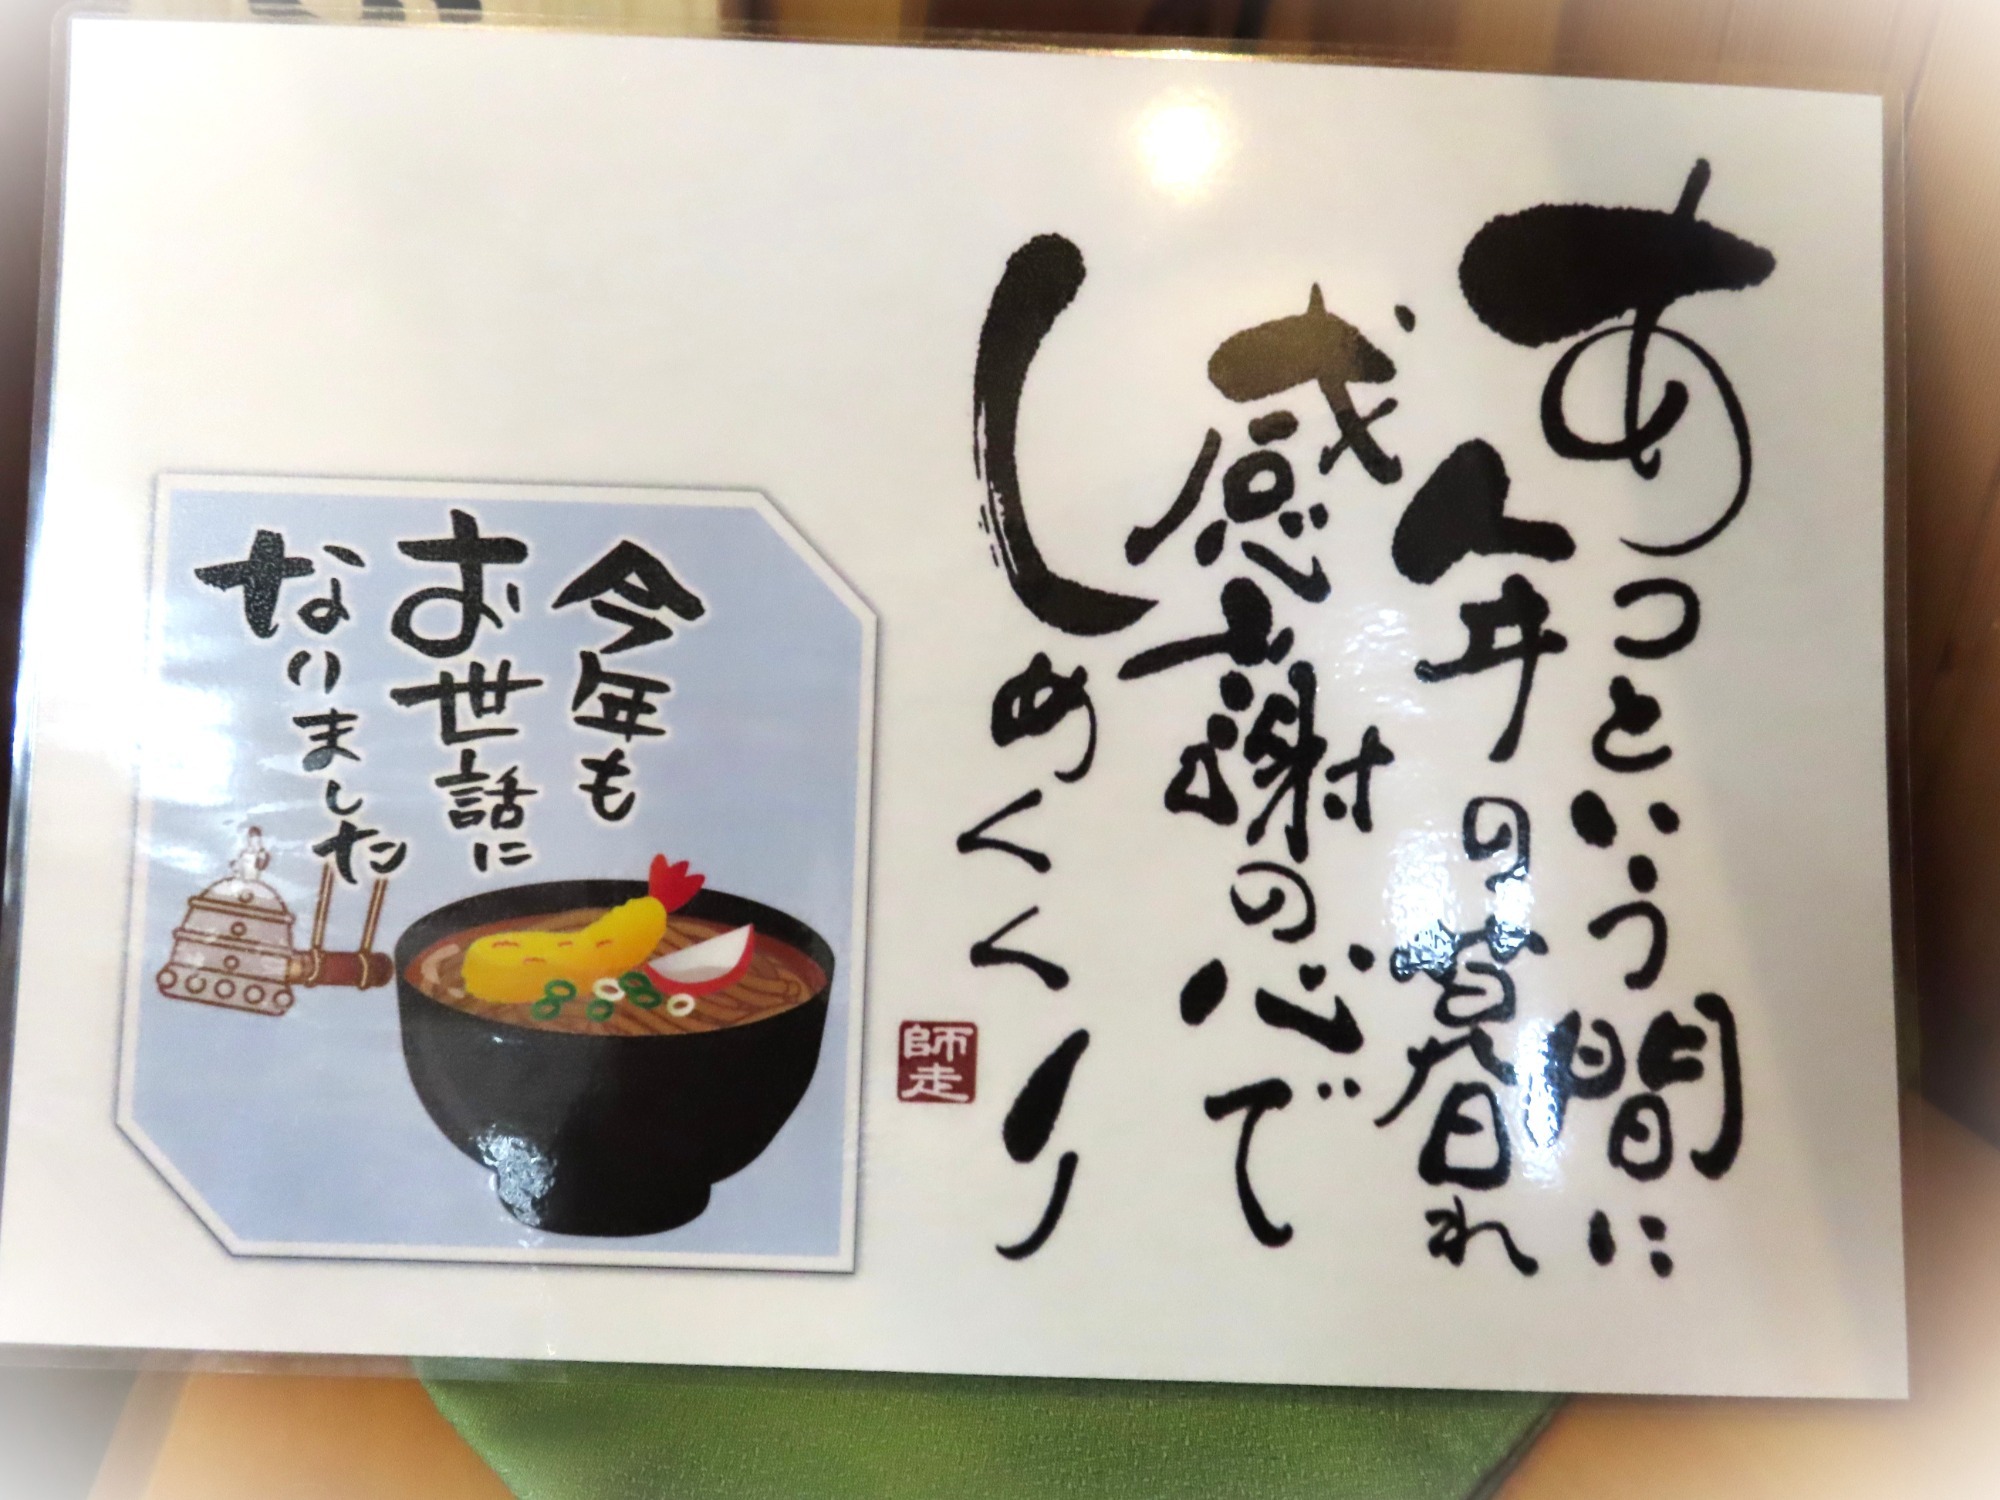 あっという間に
年の暮れ
感謝の心で
しめくくり
師走
今年も
お世話に
なりました